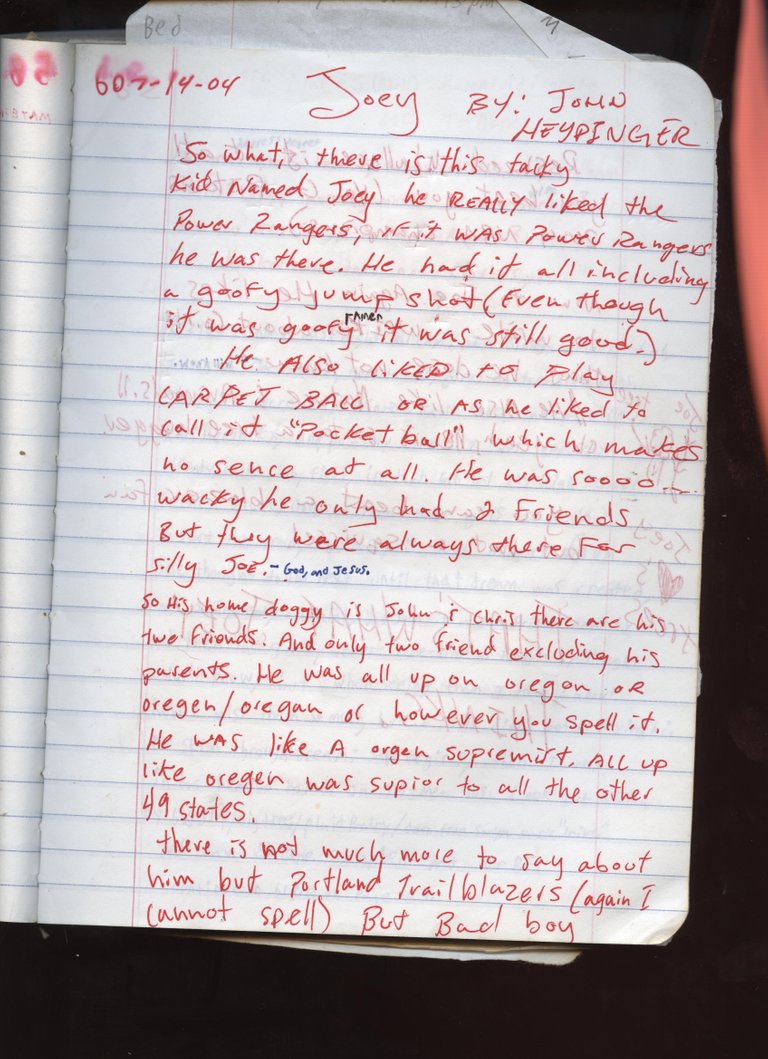 Bed
607-14-04 Joey BY: JOHN
HEYPINGER
So what, there is this tacky
Kid Named Joey he REALLY liked the
Power Rangers, if it WAS Power Rangers
he was there. He had it all including
a goofy jump shot (Even though
ramen
it was goofy it was still good.)
He Also liked to play
CARPET BALL OR AS he liked to
call it "Pocket ball" which makes
no sence at all. He was soooo
wacky he only had 2 Friends
But they were always there For
silly Joe. - God, and Jesus.
So His home doggy is John & chris there are his
two Friends. And only two friend excluding his
parents. He was all up on oregon or
oregen/oregan or however you spell it.
He was like A orgen supremist. ALL up
like oregen was supior to all the other
49 states.
there is not much more to say about
him but Portland Trailblazers (again I
cannot spell) But Bad boy